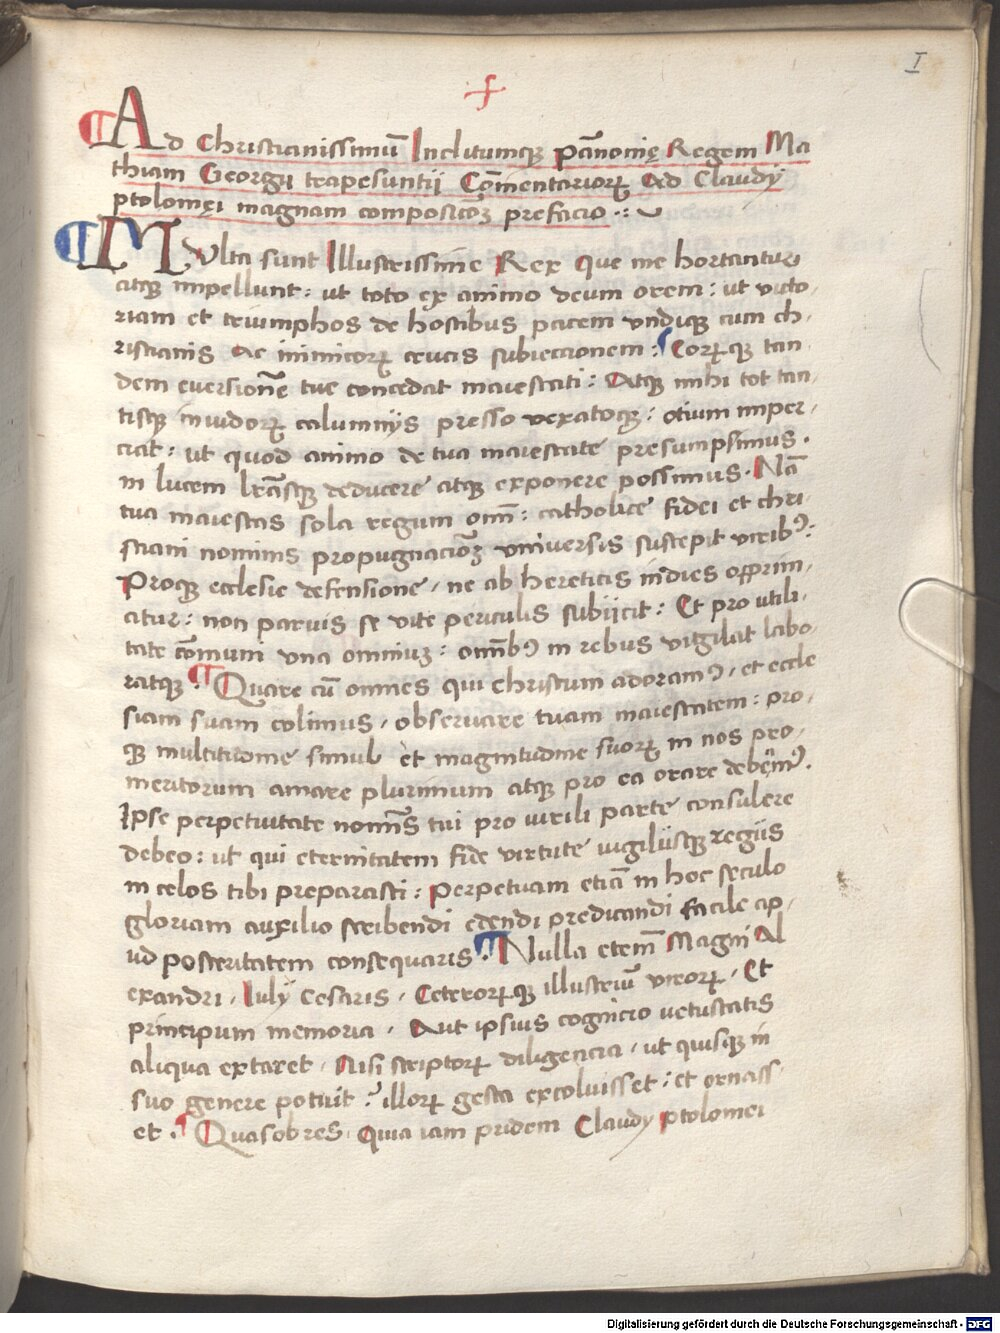 I
¶ Ad Christianissimū Inclitumqꝫ pānonię Regem Ma
thiam Georgii trapesuntij Cōmentariorꝝ Ad Claudy
ptolomęi magnam compositōꝫ prefacio
¶ MVlta sunt Illustrissime Rex Que me hortantur
atqꝫ impellunt: ut toto ex animo deum orem: ut victo,
riam et triumphos de hostibus pacem vndiqꝫ cum ch,
ristianis Ac inimicorꝝ crucis subiectionem: Eorꝝqꝫ tan
dem euersionē tue concedat maiestati: Atqꝫ mihi tot tan,
tisqꝫ inuidorꝝ calumnijs presso vexatoqꝫ: otium imper,
ciat: ut quod animo de tua maiestate presumpsimus.
in lucem lrāsqꝫ deducere atqꝫ exponere possimus. Nā
tua maiestas sola regum om̄: catholice fidei et chri
stiani nominis propugnaciōꝫ vniuersis suscepit viribꝰ:
Proqꝫ ecclesie defensione, ne ab hereticis indies opprim,
atur: non paruis se vite periculis subijcit: Et pro utili,
tate cōmuni vna omniuꝫ: om̄ibꝰ in rebus vigilat labo
ratqꝫ. ¶ Quare cū omnes qui christum adoramꝰ, et eccle
siam suam colimus, obseruare tuam maiestatem: pro,
qꝫ multitudine simul et magnitudine suorꝝ in nos pro,
meritorum amare plurimum atqꝫ pro ea orare debemꝰ.
Ipse perpetuitate nomīs tui pro uirili parte consulere
debeo: ut qui eternitatem fide virtute uigilijsqꝫ regijs
in celos tibi preparasti: perpetuam etiā in hoc seculo
gloriam auxilio scribendi edendi predicandi facile ap,
ud posteritatem consequaris. ¶ Nulla etem̄ Magni Al
exandri, Iulij Cesaris, Ceterorꝝqꝫ illustriū virorꝝ, Et
principum memoria, Aut ipsius cognicio uetustatis
aliqua extaret, Nisi scriptorꝝ diligencia, ut quisqꝫ in
suo genere potuit: illorꝝ gesta excoluisset: et ornass
et. ¶ Quasobres Quia iam pridem Claudy ptolomei
Digitalisierung gefördert durch die Deutsche Forschungsgemeinschaft - DFG